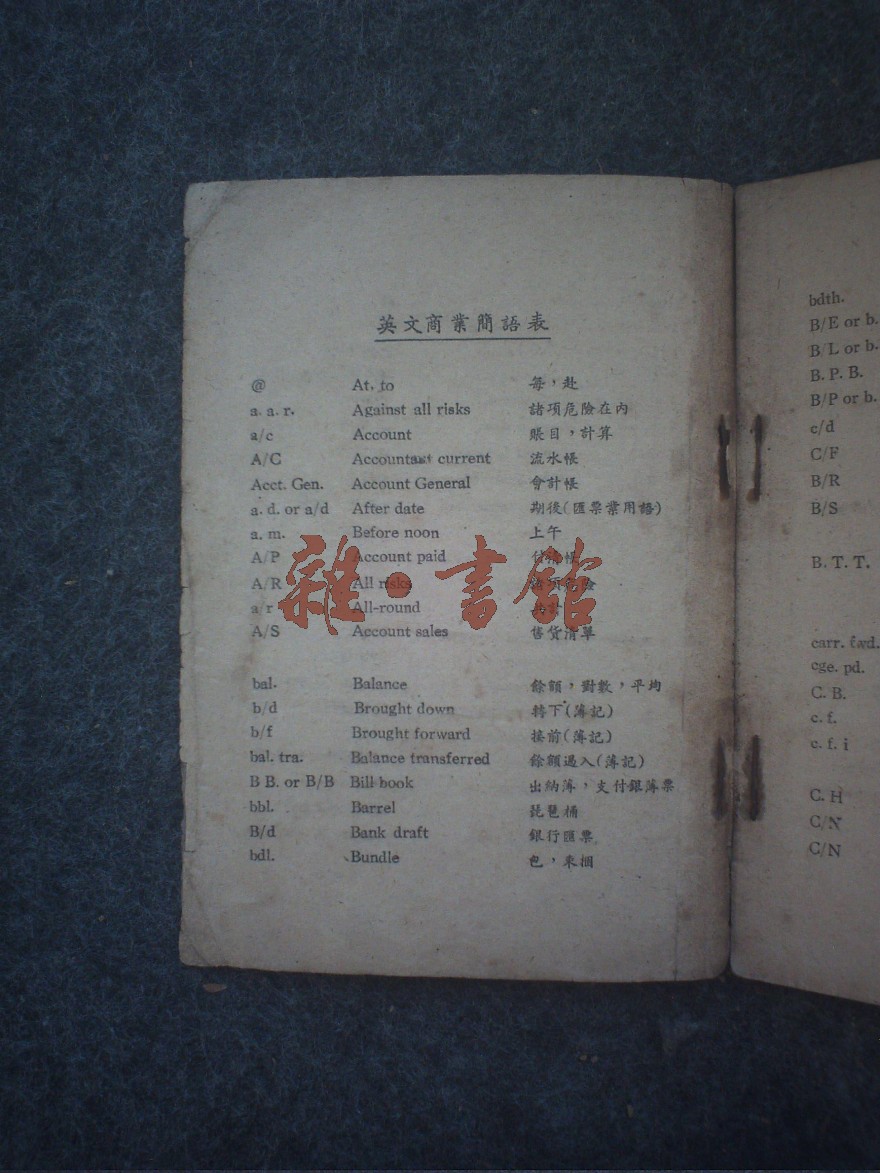 英文商業簡語表
@ At. to 每，赴
a. a. r. Against all risks 諸項危險在內
a/c Account 賬目，計算
A/C Accountant current 流水帳
Acct. Gen. Account General 會計帳
a. d. or a/d After date 期後(匯票業用語)
a. m. Before noon 上午
A/P Account paid 付清帳
A/R All risks 諸項危險
a r All-round 共計
A/S Account sales 售貨清單
雜·書館
bal. Balance 餘額，對數，平均
b/d Brought down 轉下(簿記)
b/f Brought forward 接前(簿記)
bal. tra. Balance transferred 餘額過入(簿記)
B B. or B/B Bill book 出納簿，支付銀簿票
bbl. Barrel 琵琶桶
B/d Bank draft 銀行匯票
bdl. Bundle 包，束捆
bdth.
B/E or b.
B/L or b.
B. P. B.
B/P or b.
c/d
C/F
B/R
B/S
B. T. T.
carr. fwd.
cge. pd.
C. B.
c. f.
c. f. i
C. H
C/N
C/N